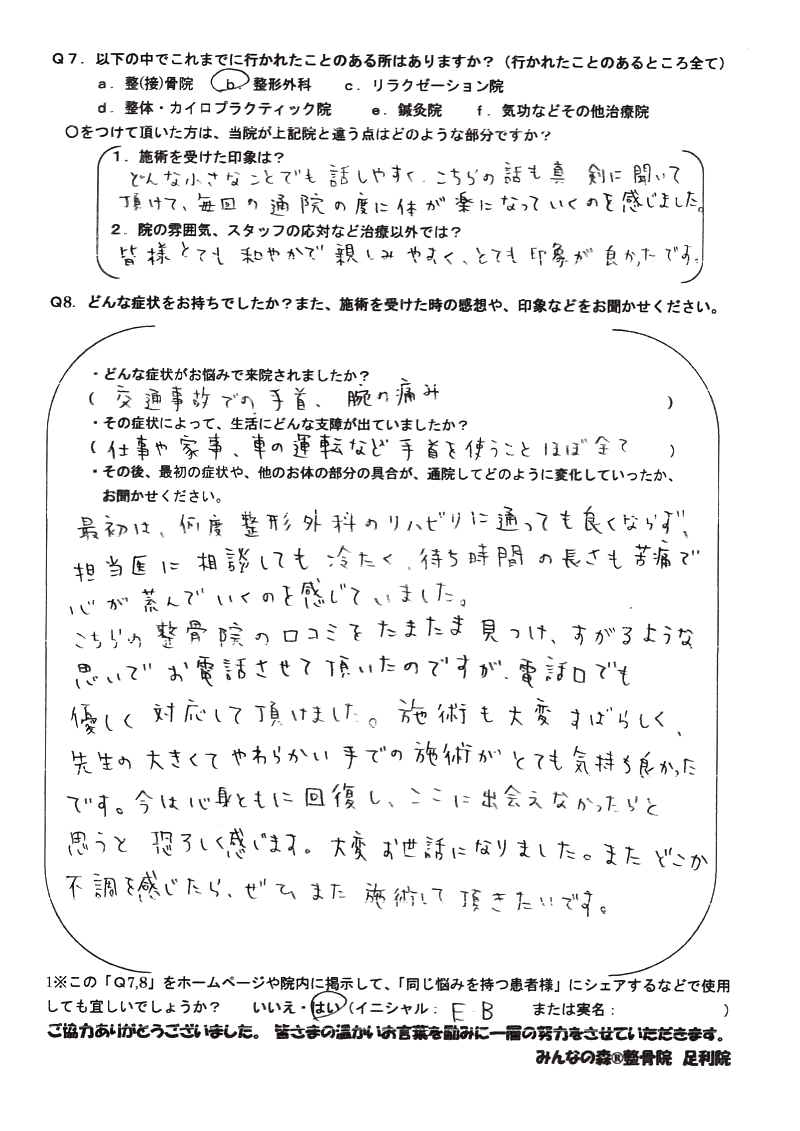 Q7．以下の中でこれまでに行かれたことのある所はありますか？（行かれたことのあるところ全て）
a．整(接)骨院　b．整形外科　c．リラクゼーション院
d．整体・カイロプラクティック院　e．鍼灸院　f．気功などその他治療院
○をつけて頂いた方は、当院が上記院と違う点はどのような部分ですか？
1．施術を受けた印象は？
どんな小さなことでも話しやすく、こちらの話も真剣に聞いて
頂けて、毎回の通院の度に体が楽になっていくのを感じました。
2．院の雰囲気、スタッフの応対など治療以外では？
皆様とても和やかで親しみやすく、とても印象が良かったです。
Q8．どんな症状をお持ちでしたか？また、施術を受けた時の感想や、印象などをお聞かせください。
・どんな症状がお悩みで来院されましたか？
（交通事故での手首、腕の痛み）
・その症状によって、生活にどんな支障が出ていましたか？
（仕事や家事、車の運転など手首を使うことほぼ全て）
・その後、最初の症状や、他のお体の部分の具合が、通院してどのように変化していったか、
お聞かせください。
最初は、何度整形外科のリハビリに通っても良くならず、
担当医に相談しても冷たく、待ち時間の長さも苦痛で
心が荒んでいくのを感じていました。
こちらの整骨院の口コミをたまたま見つけ、すがるような
思いでお電話させて頂いたのですが、電話口でも
優しく対応して頂けました。施術も大変すばらしく、
先生の大きくてやわらかい手での施術がとても気持ち良かった
です。今は心身ともに回復し、ここに出会えなかったらと
思うと恐ろしく感じます。大変お世話になりました。またどこか
不調を感じたら、ぜひまた施術して頂きたいです。
1※この「Q7,8」をホームページや院内に掲示して、「同じ悩みを持つ患者様」にシェアするなどで使用
しても宜しいでしょうか？　いいえ・はい（イニシャル：E B　または実名：　）
ご協力ありがとうございました。皆さまの温かいお言葉を励みに一層の努力をさせていただきます。
みんなの森®整骨院　足利院